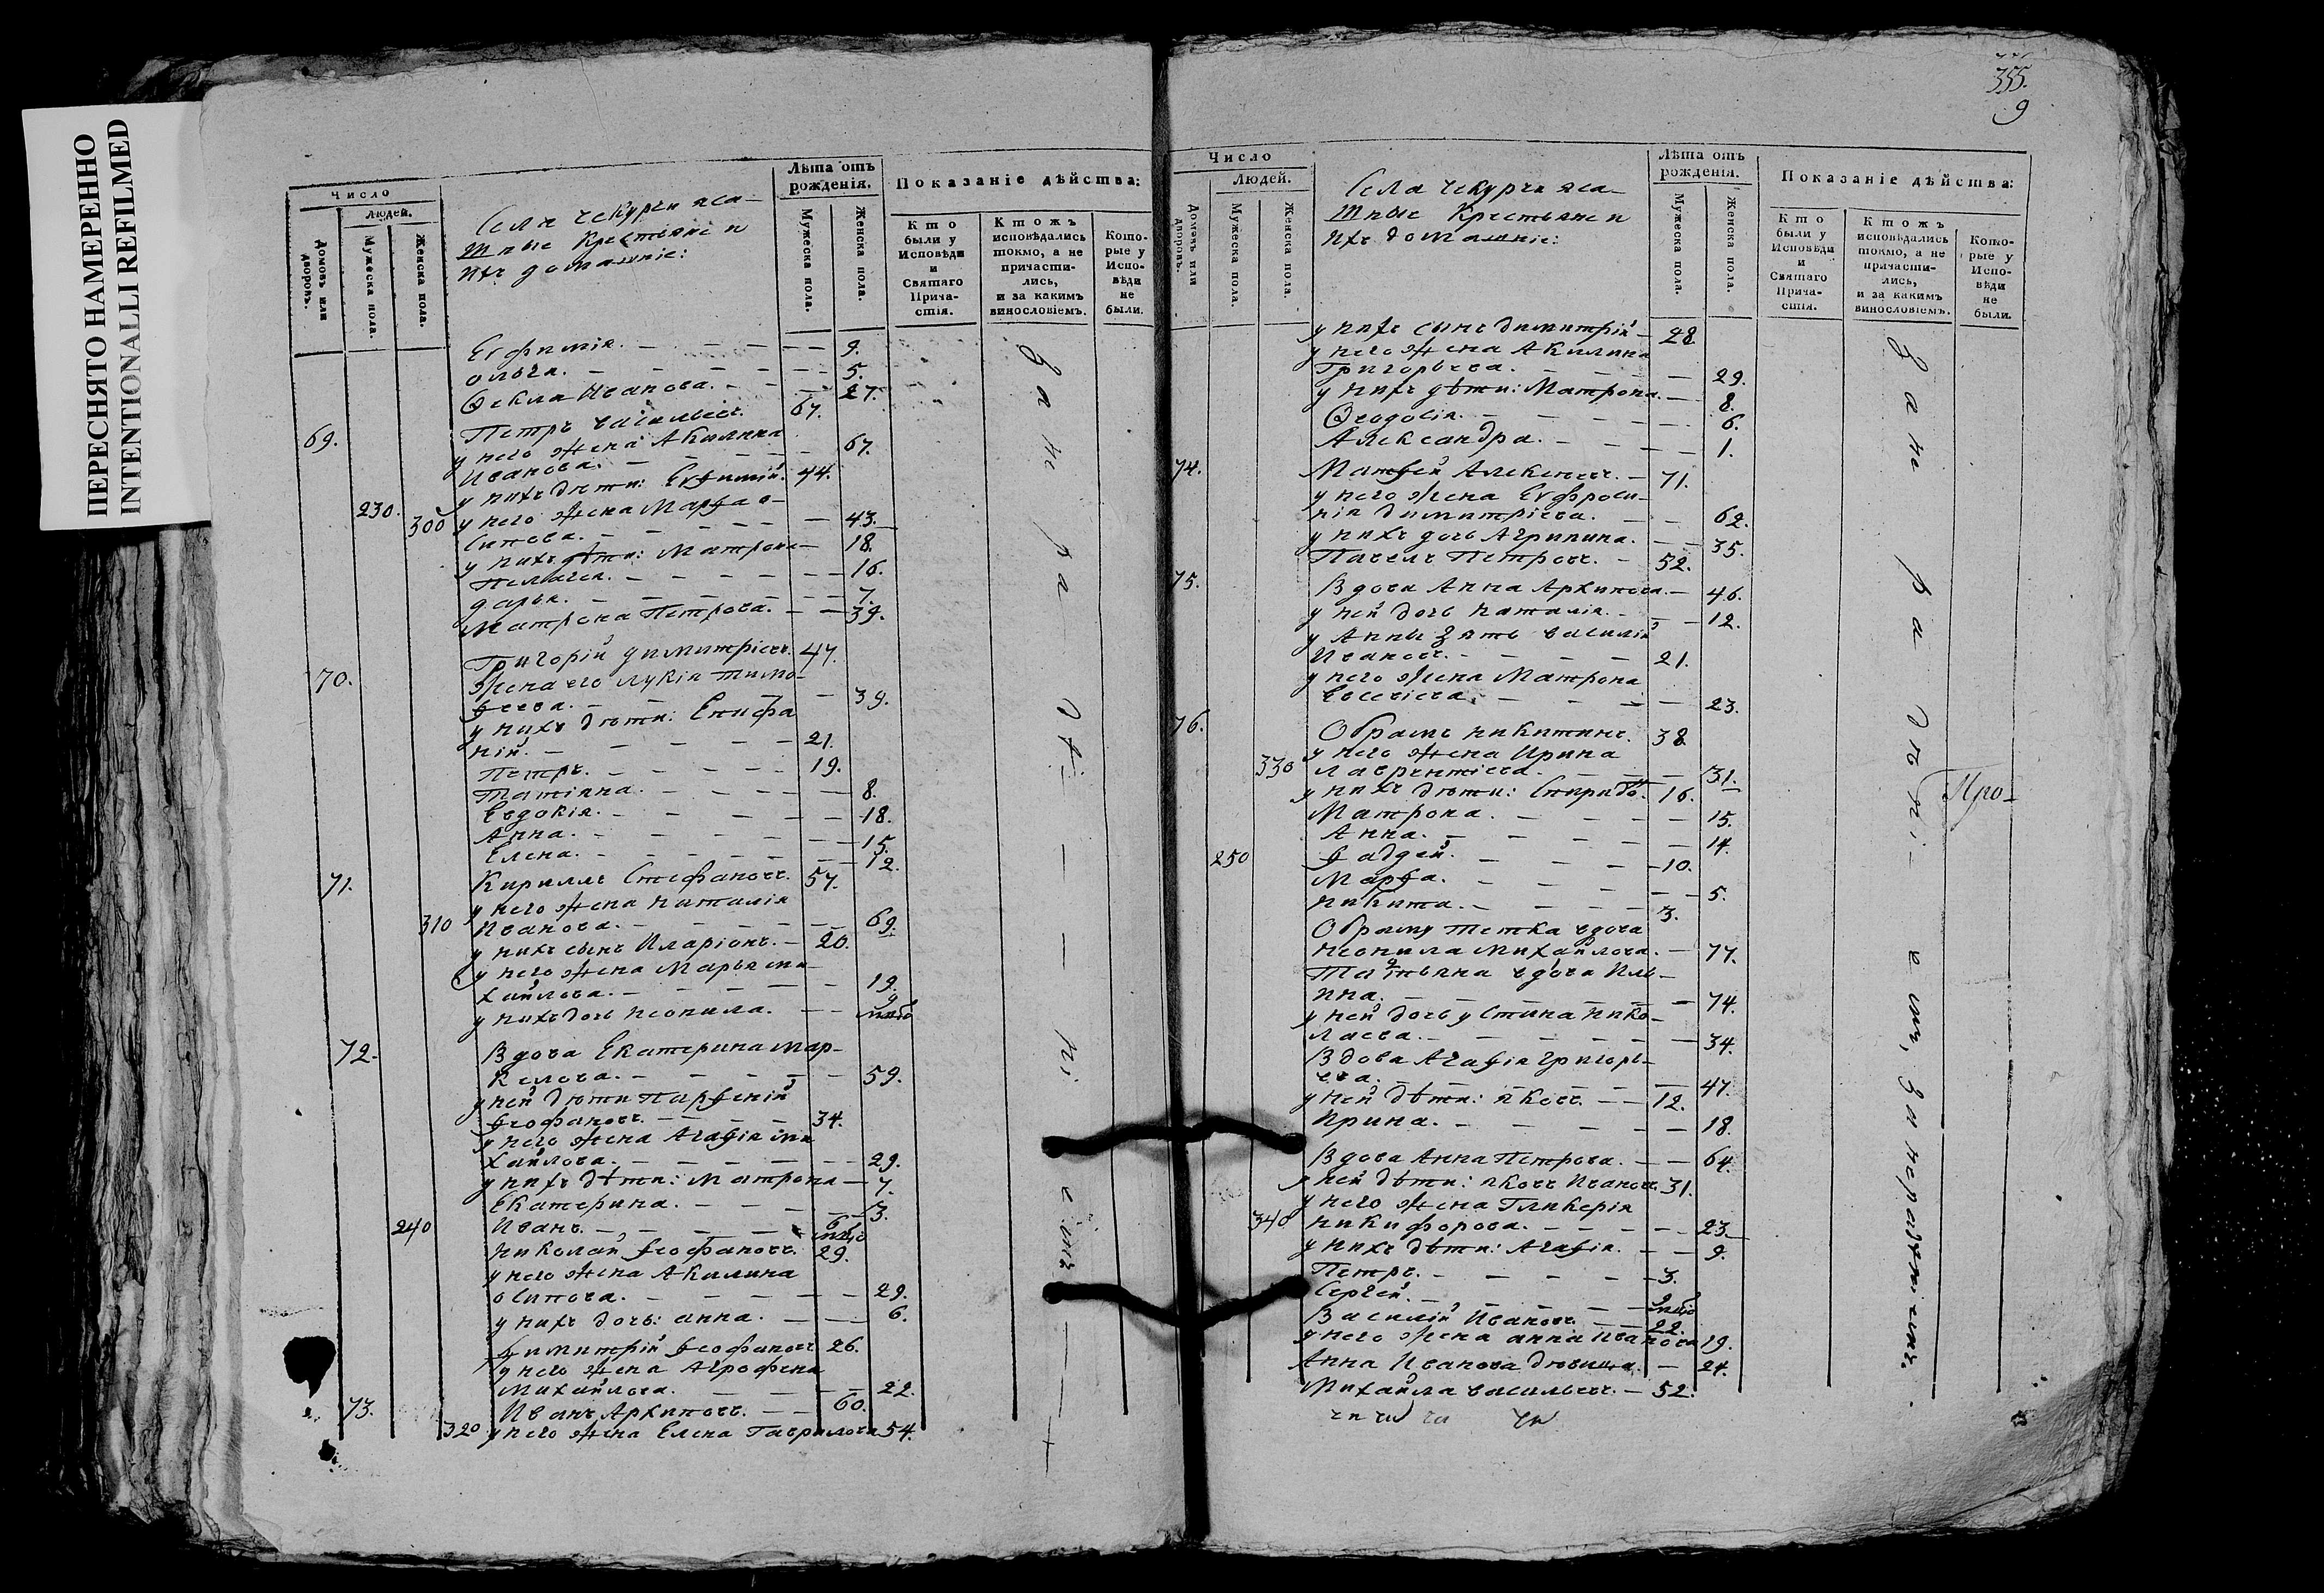 ПЕРЕСНЯТО НАМЕРЕННО
INTENTIONALLI REFILMED
Число
Людей.
Домовъ или дворовъ.
Мужеска пола.
Женска пола.
Села чекурчи яса-
шные крестьяне и
ихъ домашніе:
Лѣта отъ
рожденія.
Мужеска пола.
Женска пола.
Показаніе дѣйства:
Кто
были у
Исповѣди
и
Святаго
Прича-
стія.
Ктожъ
исповѣдались
токмо, а не
причасти-
лись,
и за какимъ
винословіемъ.
Кото-
рые у
Испо-
вѣди
не
были.
Евфимія. 9.
Ольга. 5.
Ѳекла Иванова. 27.
69. Петръ васильевъ. 67.
у него жена Акилина
Иванова. 67.
230. у нихъ дѣти: Евѳимій. 44.
300 у него жена Марѳа о-
сипова. 43.
у нихъ дѣти: Матрона 18.
Пелагея. 16.
дарья. 7.
Матрона Петрова. 39.
70. Григорій димитріевъ. 47.
Жена его лукія тимо-
ѳеева. 39.
у нихъ дѣти: Епифа
ній. 21.
Петръ. 19.
Татіяна. 8.
Евдокія. 18.
Анна. 15.
Елена. 12.
71. Кириллъ Стефановъ. 57.
у него жена наталія
310 Иванова. 69.
у нихъ сынъ Иларіонъ. 20.
у него жена Марья ми-
хайлова. 19.
у нихъ дочь неонила.
72. Вдова Екатерина мар-
келова. 59.
у ней дѣти Парѳеній
ѳеофановъ. 34.
у него жена Агаѳія ми
хайлова. 29.
у нихъ дѣти: Матрона 7.
Екатерина. 3.
240 Иванъ. 6
николай ѳеофановъ. 29.
у него жена Акилина
осипова. 29.
у нихъ дочь: анна. 6.
димитрій ѳеофановъ 26.
у него жена Агрофена
михайлова. 22.
73. Иванъ Архиповъ. 60.
320 у него жена Елена Гаврилова 54.
355.
9
Число
Людей.
Домовъ или дворовъ.
Мужеска пола.
Женска пола.
Села чекурчи яса-
шные крестьяне и
ихъ домашніе:
Лѣта отъ
рожденія.
Мужеска пола.
Женска пола.
Показаніе дѣйства:
Кто
были у
Исповѣди
и
Святаго
Прича-
стія.
Ктожъ
исповѣдались
токмо, а не
причасти-
лись,
и за какимъ
винословіемъ.
Кото-
рые у
Испо-
вѣди
не
были.
у нихъ сынъ димитрій 28.
у него жена Акилина
Григорьева. 29.
у нихъ дѣти: Матрона. 8.
Ѳеодосія. 6.
Александра. 1.
74. Матѳей Алексеевъ. 71.
у него жена Евфроси-
нія димитріева. 62.
у нихъ дочь Агрипина. 35.
Павелъ Петровъ. 52.
75. Вдова Анна Архипова. 46.
у ней дочь наталія. 12.
у Анны зять василій
Ивановъ. 21.
у него жена Матрона
Евсевіева. 23.
76. Обрамъ никитинъ. 38
у него жена Ирина
330 лаврентіева. 31.
у нихъ дѣти: Спиридо. 16.
Матрона. 15.
Анна. 14.
250 ѳаддей. 10.
Марѳа. 5.
никита. 3.
Обраму тетка вдова
неонила михайлова. 77.
Татьяна вдова Иль-
ина. 74.
у ней дочь устина нико-
лаева. 34.
Вдова Агаѳія григорь-
ева. 47.
у ней дѣти: яковъ. 12.
Ирина. 18.
Вдова Анна Петрова. 64.
у ней дѣти: яковъ Ивановъ 31.
у него жена Гликерія
340 никифорова. 23.
у нихъ дѣти: Агаѳія. 9.
Петръ. 3.
Сергей.
Василій Ивановъ 22.
у него жена анна Иванова 19.
Анна Иванова дѣвица. 24.
Михайла васильевъ. 52.
за нерадѣніемъ.